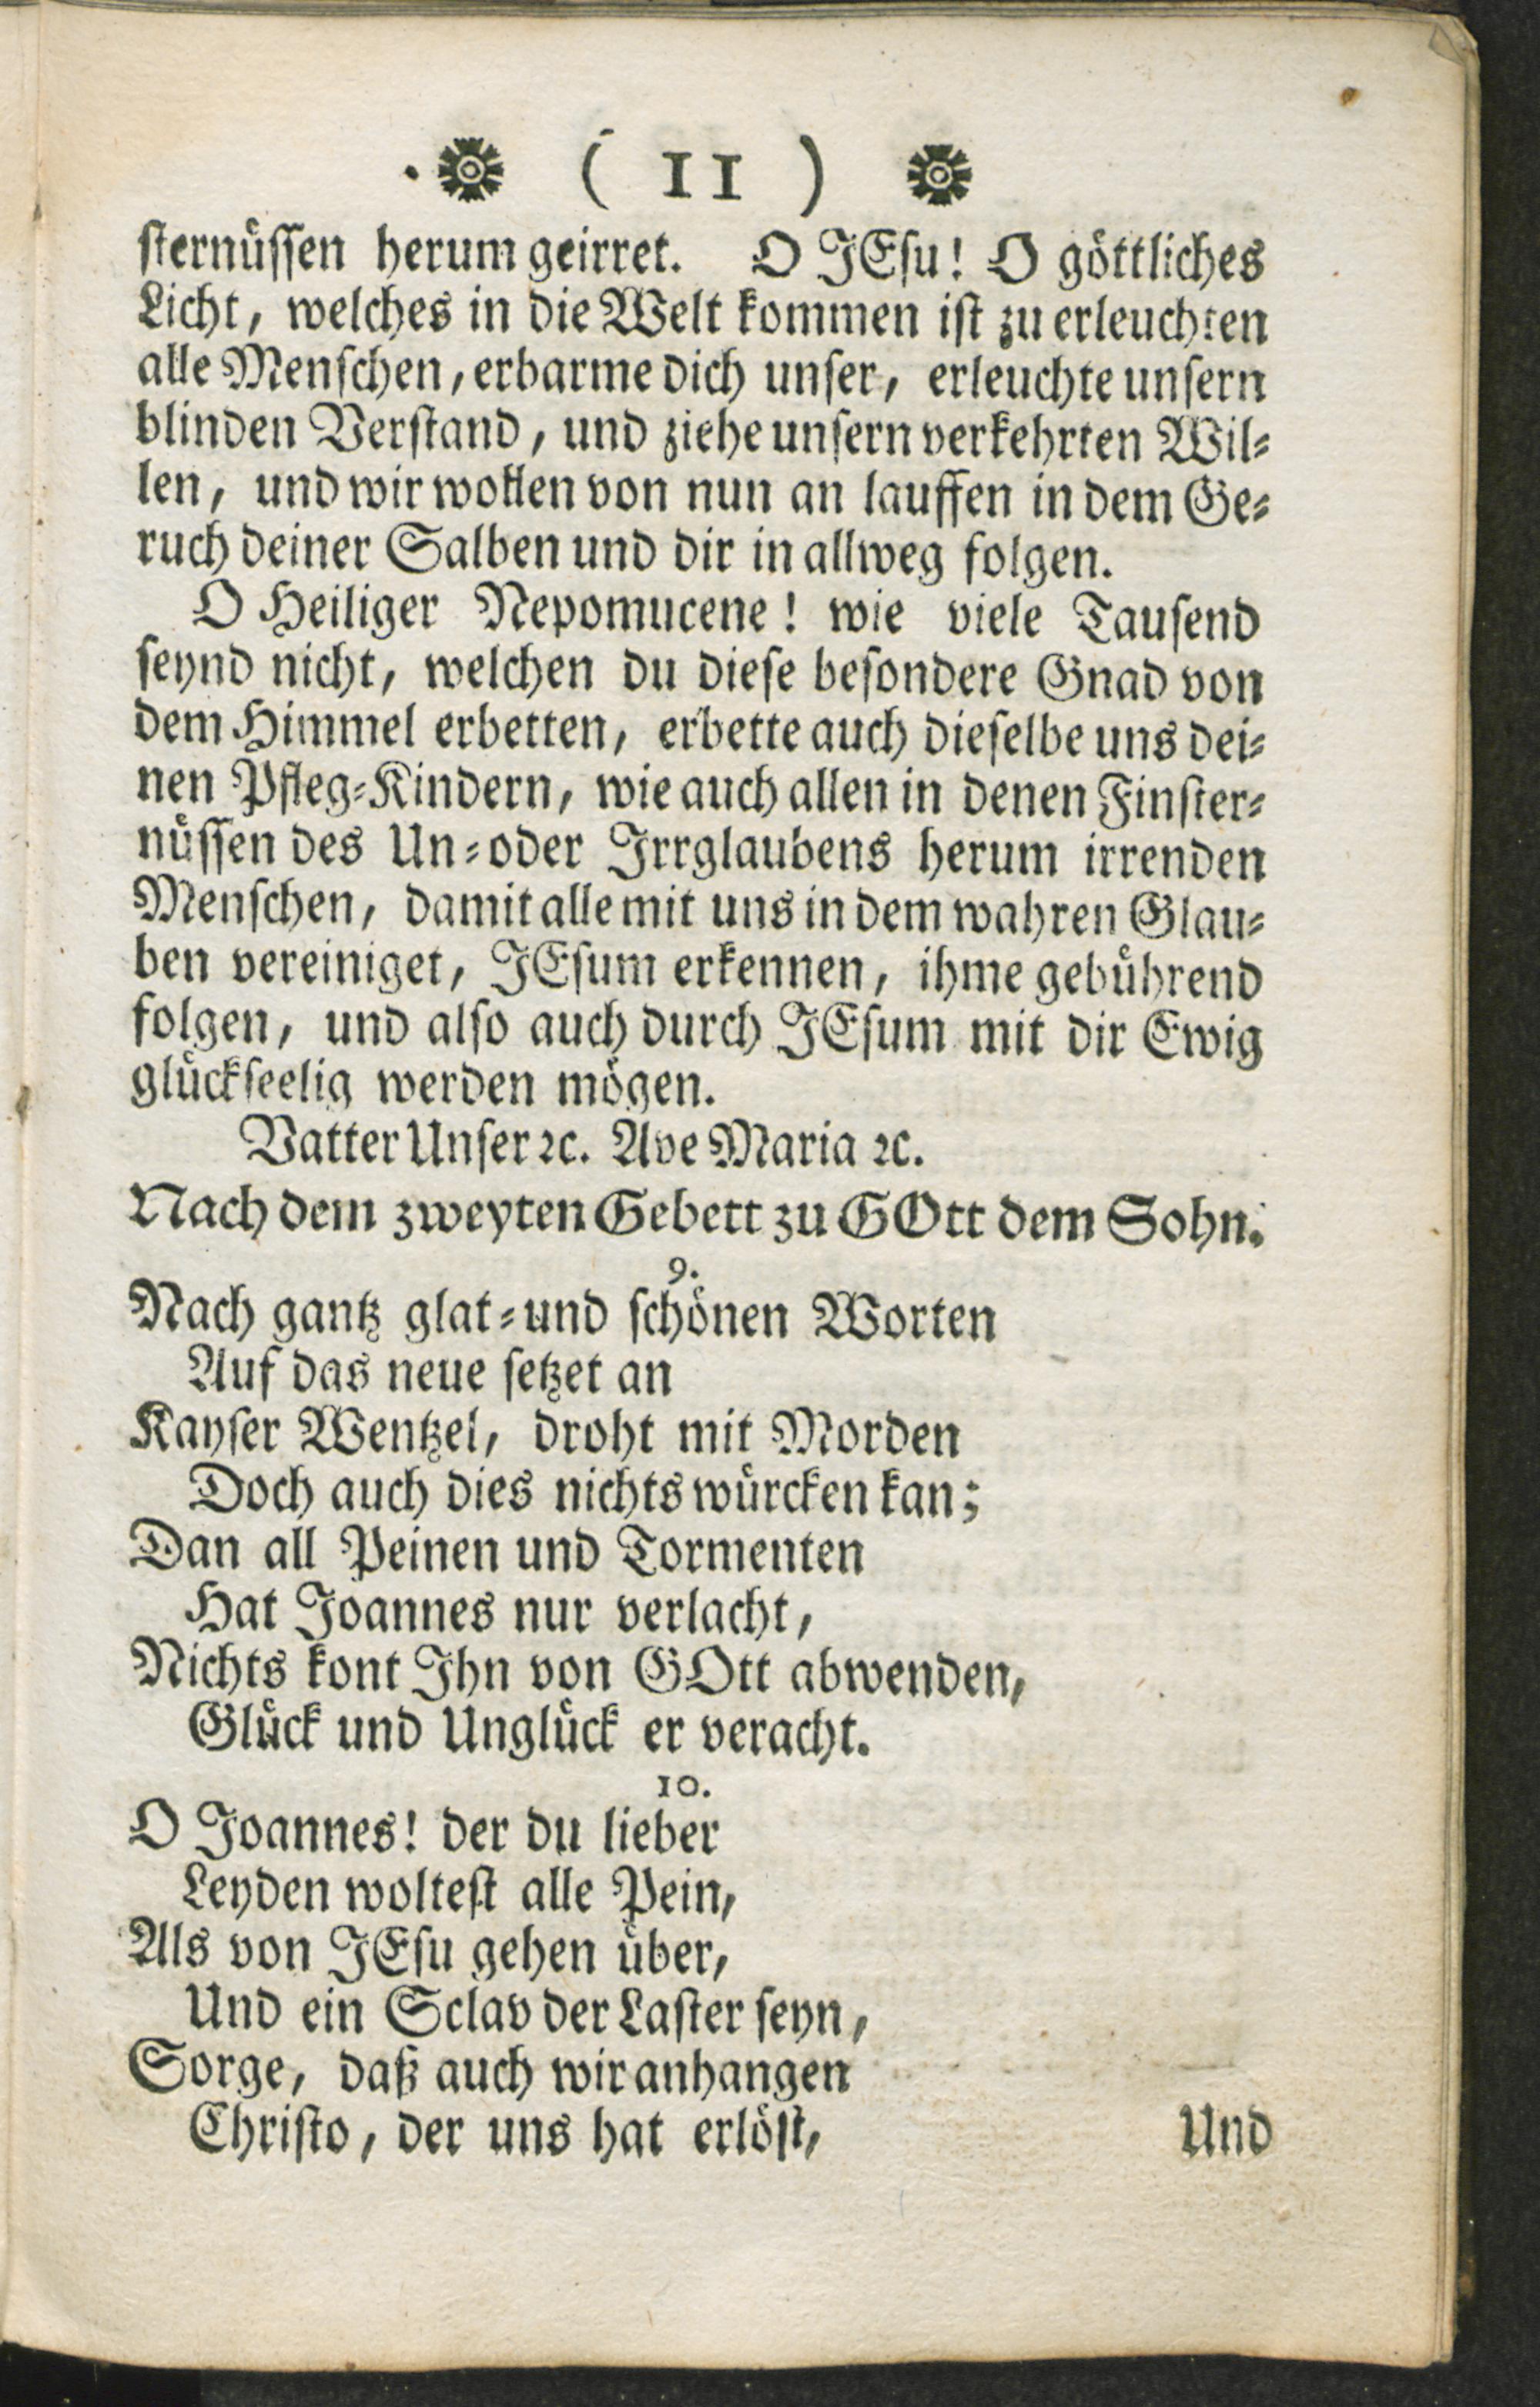 ( 11 )
sternüssen herum geirret. O JEsu! O göttliches
Licht, welches in die Welt kommen ist zu erleuchten
alle Menschen, erbarme dich unser, erleuchte unsern
blinden Verstand, und ziehe unsern verkehrten Wil-
len, und wir wollen von nun an lauffen in dem Ge-
ruch deiner Salben und dir in allweg folgen.
O Heiliger Nepomucene! wie viele Tausend
seynd nicht, welchen du diese besondere Gnad von
dem Himmel erbetten, erbette auch dieselbe uns dei-
nen Pfleg-Kindern, wie auch allen in denen Finster-
nüssen des Un- oder Irrglaubens herum irrenden
Menschen, damit alle mit uns in dem wahren Glau-
ben vereiniget, JEsum erkennen, ihme gebührend
folgen, und also auch durch JEsum mit dir Ewig
glückseelig werden mögen.
Vatter Unser ꝛc. Ave Maria ꝛc.
Nach dem zweyten Gebett zu GOtt dem Sohn.
9.
Nach gantz glat- und schönen Worten
Auf das neue setzet an
Kayser Wentzel, droht mit Morden
Doch auch dies nichts würcken kan;
Dan all Peinen und Tormenten
Hat Joannes nur verlacht,
Nichts kont Ihn von GOtt abwenden,
Glück und Unglück er veracht.
10.
O Joannes! der du lieber
Leyden woltest alle Pein,
Als von JEsu gehen über,
Und ein Sclav der Laster seyn,
Sorge, daß auch wir anhangen
Christo, der uns hat erlöst,
Und